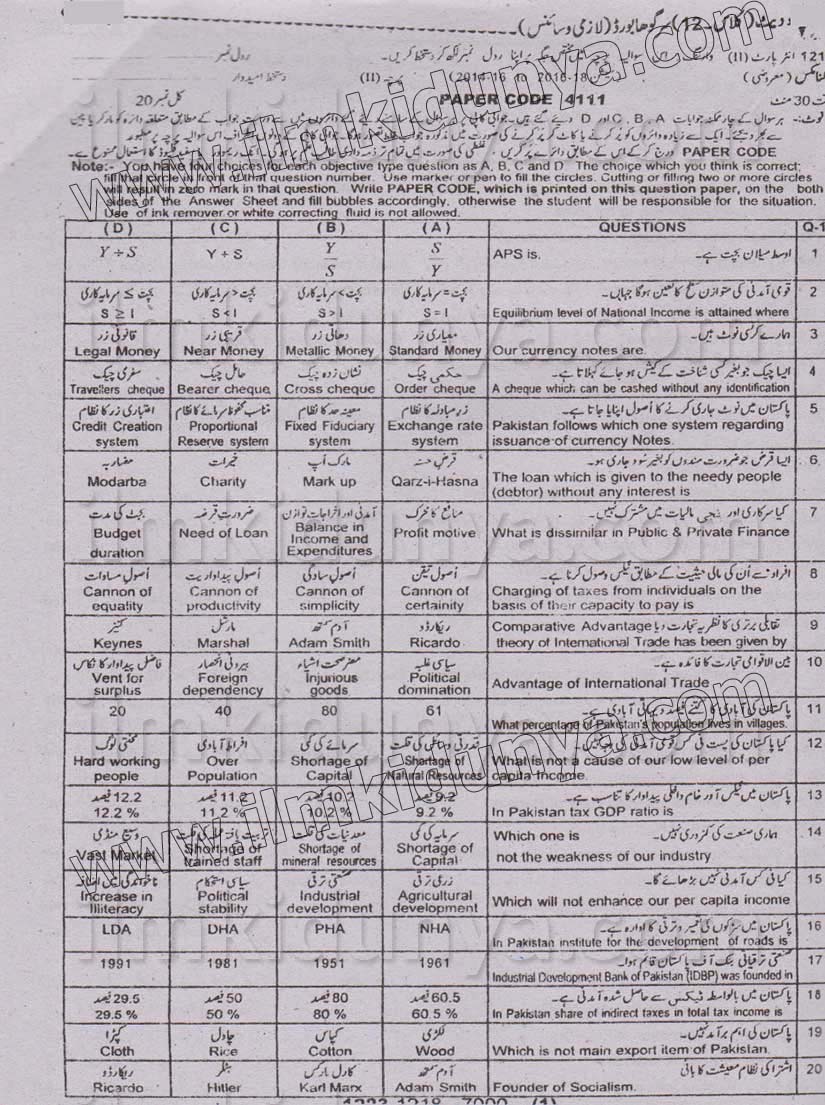 (لازمی و سائنس)
PAPER CODE 4111
کل نمبر 20
Note:- You have four choices for each objective type question as A, B, C and D. The choice which you think is correct;
fill that circle in front of that question number. Use marker or pen to fill the circles. Cutting or filling two or more circles
will result in zero mark in that question. Write PAPER CODE, which is printed on this question paper, on the both
sides of the Answer Sheet and fill bubbles accordingly, otherwise the student will be responsible for the situation.
Use of ink remover or white correcting fluid is not allowed.
( D ) ( C ) ( B ) ( A ) QUESTIONS Q-1
Y ÷ S Y + S Y/S S/Y APS is. اوسط میلان بچت ہے۔ 1
بچت ≥ سرمایہ کاری بچت < سرمایہ کاری بچت > سرمایہ کاری بچت = سرمایہ کاری قومی آمدنی کی متوازن سطح کا تعین ہوگا جہاں۔ 2
S ≥ I S < I S > I S = I Equilibrium level of National Income is attained where
قانونی زر قریبی زر دھاتی زر معیاری زر ہمارے کرنسی نوٹ ہیں۔ 3
Legal Money Near Money Metallic Money Standard Money Our currency notes are.
سفری چیک حامل چیک نشان زدہ چیک حکمی چیک ایسا چیک جو بغیر کسی شناخت کے کیش ہو جائے کہلاتا ہے۔ 4
Travellers cheque Bearer cheque Cross cheque Order cheque A cheque which can be cashed without any identification
اعتباری زر کا نظام متناسب محفوظ سرمائے کا نظام معینہ حد کا نظام زر مبادلہ کا نظام پاکستان میں نوٹ جاری کرنے کا اصول اپنایا جاتا ہے۔ 5
Credit Creation system Proportional Reserve system Fixed Fiduciary system Exchange rate system Pakistan follows which one system regarding issuance of currency Notes.
مضاربہ خیرات مارک اپ قرض حسنہ ایسا قرض جو ضرورت مندوں کو بغیر سود جاری ہو۔ 6
Modarba Charity Mark up Qarz-i-Hasna The loan which is given to the needy people (debtor) without any interest is
بجٹ کی مدت ضرورت قرضہ آمدنی اور اخراجات توازن منافع کا محرک کیا سرکاری اور نجی مالیات میں مشترک نہیں۔ 7
Budget duration Need of Loan Balance in Income and Expenditures Profit motive What is dissimilar in Public & Private Finance
اصول مساوات اصول پیداواریت اصول سادگی اصول تیقن افراد سے اُن کی مالی حیثیت کے مطابق ٹیکس وصول کرنا ہے۔ 8
Cannon of equality Cannon of productivity Cannon of simplicity Cannon of certainity Charging of taxes from individuals on the basis of their capacity to pay is
کینز مارشل آدم سمتھ ریکارڈو تقابلی برتری کا نظریہ تجارت دیا 9
Keynes Marshal Adam Smith Ricardo Comparative Advantage theory of International Trade has been given by
فاضل پیداوار کا نکاس بیرونی انحصار مضر صحت اشیاء سیاسی غلبہ بین الاقوامی تجارت کا فائدہ ہے۔ 10
Vent for surplus Foreign dependency Injurious goods Political domination Advantage of International Trade
20 40 80 61 پاکستان کی آبادی کا کتنے فیصد دیہاتی آبادی ہے۔ 11
What percentage of Pakistan's population lives in villages.
محنتی لوگ افراط آبادی سرمائے کی کمی قدرتی وسائل کی قلت 12
Hard working people Over Population Shortage of Capital Shortage of Natural Resources What is not a cause of our low level of per capita Income
12.2 فیصد 11.2 فیصد 10.2 فیصد 9.2 فیصد پاکستان میں ٹیکس اور خام داخلی پیداوار کا تناسب ہے۔ 13
12.2 % 11.2 % 10.2 % 9.2 % In Pakistan tax GDP ratio is
وسیع منڈی تربیت یافتہ عملہ کی قلت معدنیات کی قلت سرمایہ کی کمی ہماری صنعت کی کمزوری نہیں۔ 14
Vast Market Shortage of trained staff Shortage of mineral resources Shortage of Capital Which one is not the weakness of our industry
ناخواندگی میں اضافہ سیاسی استحکام صنعتی ترقی زرعی ترقی کیا فی کس آمدنی نہیں بڑھائے گا۔ 15
Increase in Illiteracy Political stability Industrial development Agricultural development Which will not enhance our per capita income
LDA DHA PHA NHA پاکستان میں سڑکوں کی تعمیر و ترقی کا ادارہ ہے۔ 16
In Pakistan institute for the development of roads is
1991 1981 1951 1961 صنعتی ترقیاتی بنک آف پاکستان قائم ہوا۔ 17
Industrial Development Bank of Pakistan (IDBP) was founded in
29.5 فیصد 50 فیصد 80 فیصد 60.5 فیصد پاکستان میں بالواسطہ ٹیکس سے حاصل شدہ آمدنی ہے۔ 18
29.5 % 50 % 80 % 60.5 % In Pakistan share of indirect taxes in total tax income is
کپڑا چاول کپاس لکڑی پاکستان کی اہم برآمد نہیں۔ 19
Cloth Rice Cotton Wood Which is not main export item of Pakistan.
ریکارڈو ہٹلر کارل مارکس آدم سمتھ اشتراکی نظام معیشت کا بانی 20
Ricardo Hitler Karl Marx Adam Smith Founder of Socialism.
www.ilmkidunya.com